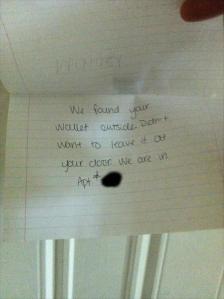 We found your
wallet outside. Didn't
want to leave it at
your door. We are in
Apt #